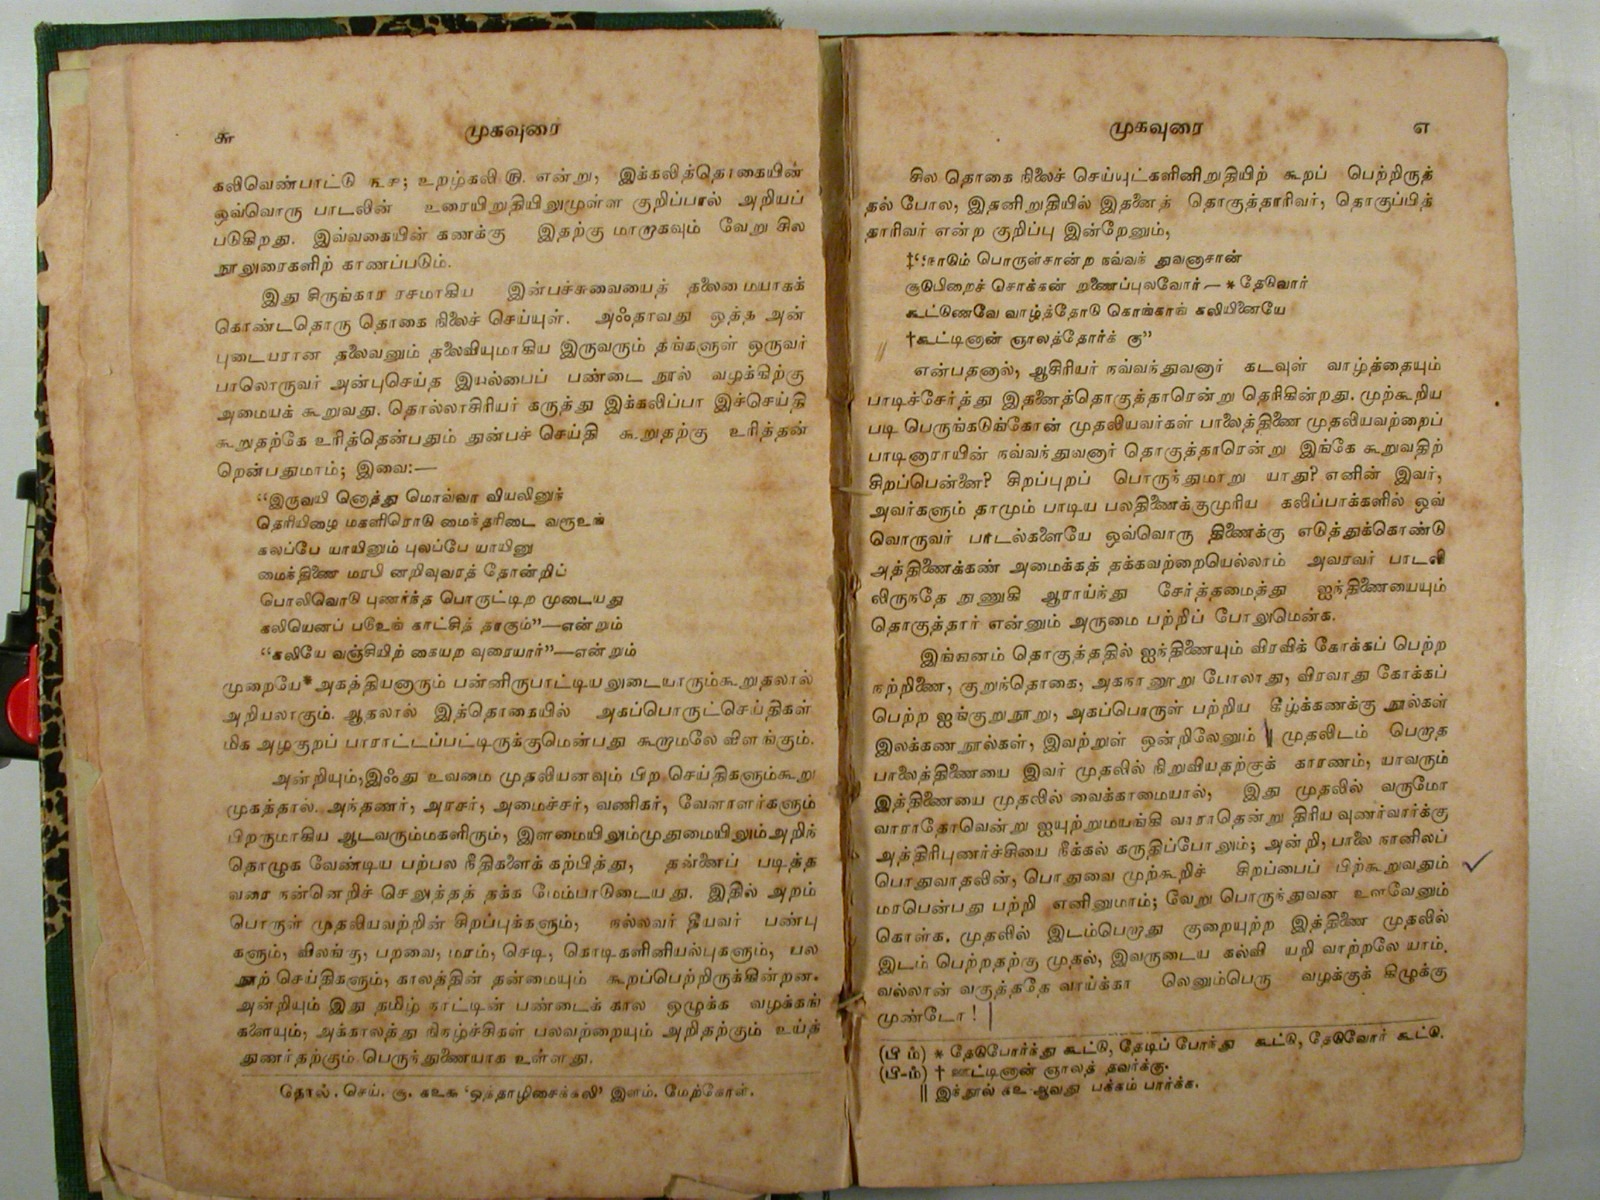 முகவுரை
கலிவெண்பாட்டு ௩௪; உறழ்கலி ௫. என்று, இக்கலித்தொகையின்
ஒவ்வொரு பாடலின் உரையிறுதியிலுமுள்ள குறிப்பால் அறியப்
படுகிறது. இவ்வகையின் கணக்கு இதற்கு மாறாகவும் வேறு சில
நூலுரைகளிற் காணப்படும்.
இது சிருங்கார ரசமாகிய இன்பச்சுவையைத் தலைமையாகக்
கொண்டதொரு தொகை நிலைச் செய்யுள். அஃதாவது ஒத்த அன்
புடையரான தலைவனும் தலைவியுமாகிய இருவரும் தங்களுள் ஒருவர்
பாலொருவர் அன்புசெய்த இயல்பைப் பண்டை நூல் வழக்கிற்கு
அமையக் கூறுவது. தொல்லாசிரியர் கருத்து இக்கலிப்பா இச்செய்தி
கூறுதற்கே உரித்தென்பதும் துன்பச் செய்தி கூறுதற்கு உரித்தன்
றென்பதுமாம்; இவை:—
“இருவயி னொத்து மொல்லா வியலினுந்
தெரியிழை மகளிரொடு மைந்தரிடை வரூஉங்
கலப்பே யாயினும் புலப்பே யாயினு
மைந்திணை மரபி னறிவுவரத் தோன்றிப்
பொலிவொடு புணர்ந்த பொருட்டிற முடையது
கலியெனப் படூஉங் காட்சித் தாகும்”—என்றும்
“கலியே வஞ்சியிற் கையற வுரையார்”—என்றும்
முறையே*அகத்தியனாரும் பன்னிருபாட்டியலுடையாரும்கூறுதலால்
அறியலாகும். ஆதலால் இத்தொகையில் அகப்பொருட்செய்திகள்
மிக அழகுறப் பாராட்டப்பட்டிருக்குமென்பது கூறாமலே விளங்கும்.
அன்றியும்,இஃது உவமை முதலியனவும் பிற செய்திகளும்கூறு
முகத்தால் அந்தணர், அரசர், அமைச்சர், வணிகர், வேளாளர்களும்
பிறருமாகிய ஆடவரும்மகளிரும், இளமையிலும்முதுமையிலும்அறிந்
தொழுக வேண்டிய பற்பல நீதிகளைக் கற்பித்து, தன்னைப் படித்த
வரை நன்னெறிச் செலுத்தத் தக்க மேம்பாடுடையது. இதில் அறம்
பொருள் முதலியவற்றின் சிறப்புக்களும், நல்லவர் தீயவர் பண்பு
களும், விலங்கு, பறவை, மரம், செடி, கொடிகளினியல்புகளும், பல
நூற் செய்திகளும், காலத்தின் தன்மையும் கூறப்பெற்றிருக்கின்றன.
அன்றியும் இது தமிழ் நாட்டின் பண்டைக் கால ஒழுக்க வழக்கங்
களையும், அக்காலத்து நிகழ்ச்சிகள் பலவற்றையும் அறிதற்கும் உய்த்
துணர்தற்கும் பெருந்துணையாக உள்ளது.
தொல். செய். சூ. ‘ஒத்தாழிசைக்கலி’ இளம். மேற்கோள்.
முகவுரை எ
சில தொகை நிலைச் செய்யுட்களினிறுதியிற் கூறப் பெற்றிருத்
தல் போல, இதனிறுதியில் இதனைத் தொகுத்தாரிவர், தொகுப்பித்
தாரிவர் என்ற குறிப்பு இன்றேனும்,
‡“நாடும் பொருள்சான்ற நல்லந் துவனாசான்
சூடுபிறைச் சொக்கன் றணைப்புலவோர்—*தேடுவார்
கூட்டுணவே வாழ்த்தோடு கொங்காங் கலியினையே
†கூட்டினான் ஞாலத்தோர்க் கு”
என்பதனால், ஆசிரியர் நல்லந்துவனார் கடவுள் வாழ்த்தையும்
பாடிச்சேர்த்து இதனைத்தொகுத்தாரென்று தெரிகின்றது. முற்கூறிய
படி பெருங்கடுங்கோன் முதலியவர்கள் பாலைத்திணை முதலியவற்றைப்
பாடினாராயின் நல்லந்துவனார் தொகுத்தாரென்று இங்கே கூறுவதிற்
சிறப்பென்னை? சிறப்புறப் பொருந்துமாறு யாது? எனின் இவர்,
அவர்களும் தாமும் பாடிய பலதிணைக்குமுரிய கலிப்பாக்களில் ஒவ்
வொருவர் பாடல்களையே ஒவ்வொரு திணைக்கு எடுத்துக்கொண்டு
அத்திணைக்கண் அமைக்கத் தக்கவற்றையெல்லாம் அவரவர் பாடலி
லிருந்தே நுணுகி ஆராய்ந்து சேர்த்தமைத்து ஐந்திணையையும்
தொகுத்தார் என்னும் அருமை பற்றிப் போலுமென்க.
இங்ஙனம் தொகுத்ததில் ஐந்திணையும் விரவிக் கோக்கப் பெற்ற
நற்றிணை, குறுந்தொகை, அகநானூறு போலாது, விரவாது கோக்கப்
பெற்ற ஐங்குறுநூறு, அகப்பொருள் பற்றிய கீழ்க்கணக்கு நூல்கள்
இலக்கண நூல்கள், இவற்றுள் ஒன்றிலேனும் ‖ முதலிடம் பெறாத
பாலைத்திணையை இவர் முதலில் நிறுவியதற்குக் காரணம், யாவரும்
இத்திணையை முதலில் வைக்காமையால், இது முதலில் வருமோ
வாராதோவென்று ஐயுற்றுமயங்கி வாராதென்று திரிய வுணர்வார்க்கு
அத்திரிபுணர்ச்சியை நீக்கல் கருதிப்போலும்; அன்றி, பாலை நானிலப்
பொதுவாதலின், பொதுவை முற்கூறிச் சிறப்பைப் பிற்கூறுவதும்
மரபென்பது பற்றி எனினுமாம்; வேறு பொருந்துவன உளவேனும்
கொள்க. முதலில் இடம்பெறாது குறையுற்ற இத்திணை முதலில்
இடம் பெற்றதற்கு முதல், இவருடைய கல்வி யறி வாற்றலே யாம்.
வல்லான் வகுத்ததே வாய்க்கா லெனும்பெரு வழக்குக் கிழுக்கு
முண்டோ!
(பி-ம்) * தேடுபோர்ந்து கூட்டு, தேடிப் போந்து கூட்டு, தேடுவோர் கூட்டு.
(பி-ம்) † ஊட்டினான் ஞாலத் தவர்க்கு.
‖ இந்நூல் ௧௨-ஆவது பக்கம் பார்க்க.